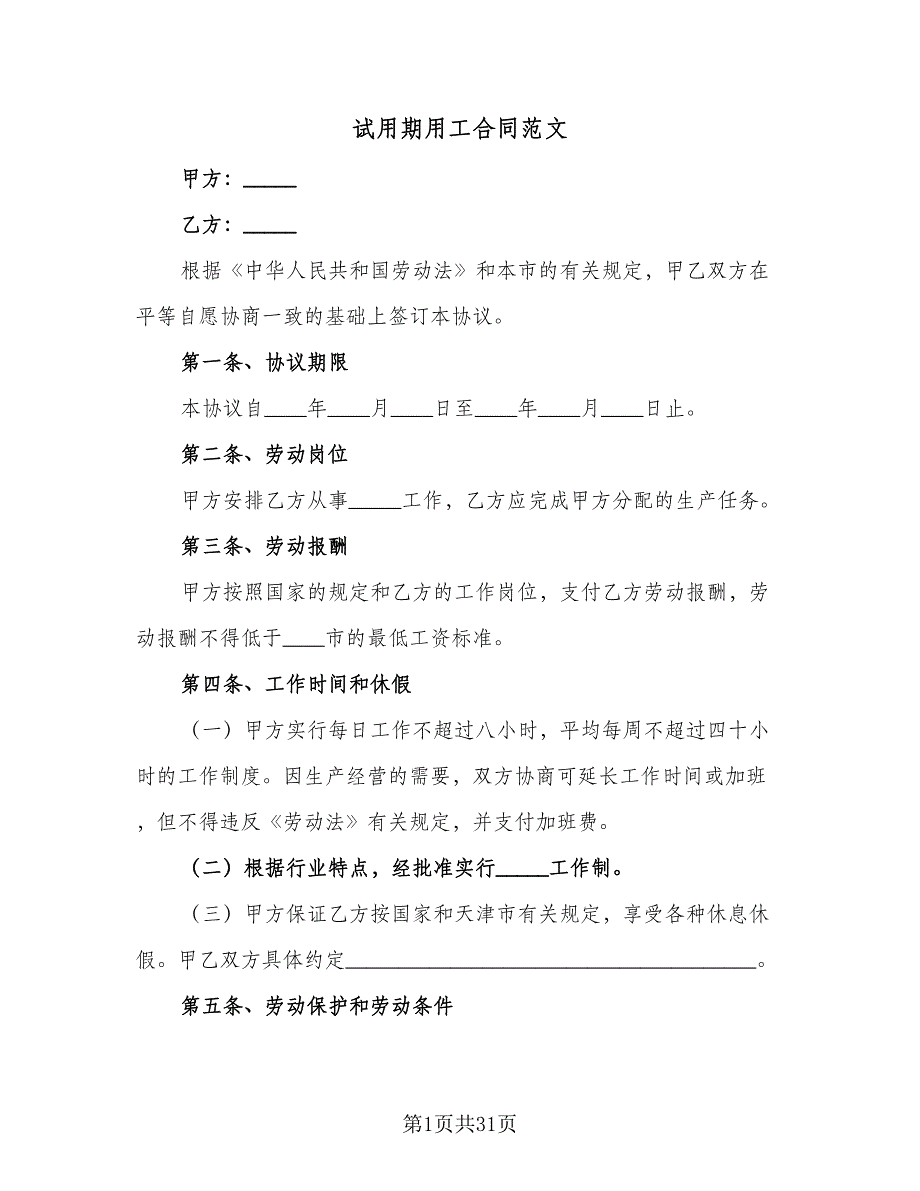 试用期用工合同范文
甲方：_____
乙方：_____
根据《中华人民共和国劳动法》和本市的有关规定，甲乙双方在
平等自愿协商一致的基础上签订本协议。
第一条、协议期限
本协议自____年____月____日至____年____月____日止。
第二条、劳动岗位
甲方安排乙方从事_____工作，乙方应完成甲方分配的生产任务。
第三条、劳动报酬
甲方按照国家的规定和乙方的工作岗位，支付乙方劳动报酬，劳
动报酬不得低于____市的最低工资标准。
第四条、工作时间和休假
（一）甲方实行每日工作不超过八小时，平均每周不超过四十小
时的工作制度。因生产经营的需要，双方协商可延长工作时间或加班
，但不得违反《劳动法》有关规定，并支付加班费。
（二）根据行业特点，经批准实行_____工作制。
（三）甲方保证乙方按国家和天津市有关规定，享受各种休息休
假。甲乙双方具体约定_______________________________________。
第五条、劳动保护和劳动条件
第1页共31页